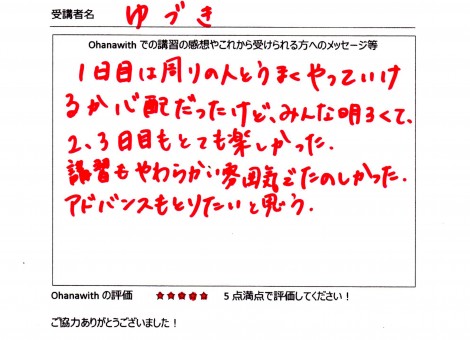 受講者名 ゆづき
Ohanawith での講習の感想やこれから受けられる方へのメッセージ等
1日目は周りの人とうまくやっていけ
るか心配だったけど、みんな明るくて、
2、3日目もとても楽しかった.
講習もやわらかい雰囲気でたのしかった.
アドバンスもとりたいと思う.
Ohanawith の評価 ★★★★★ 5 点満点で評価してください！
ご協力ありがとうございました！